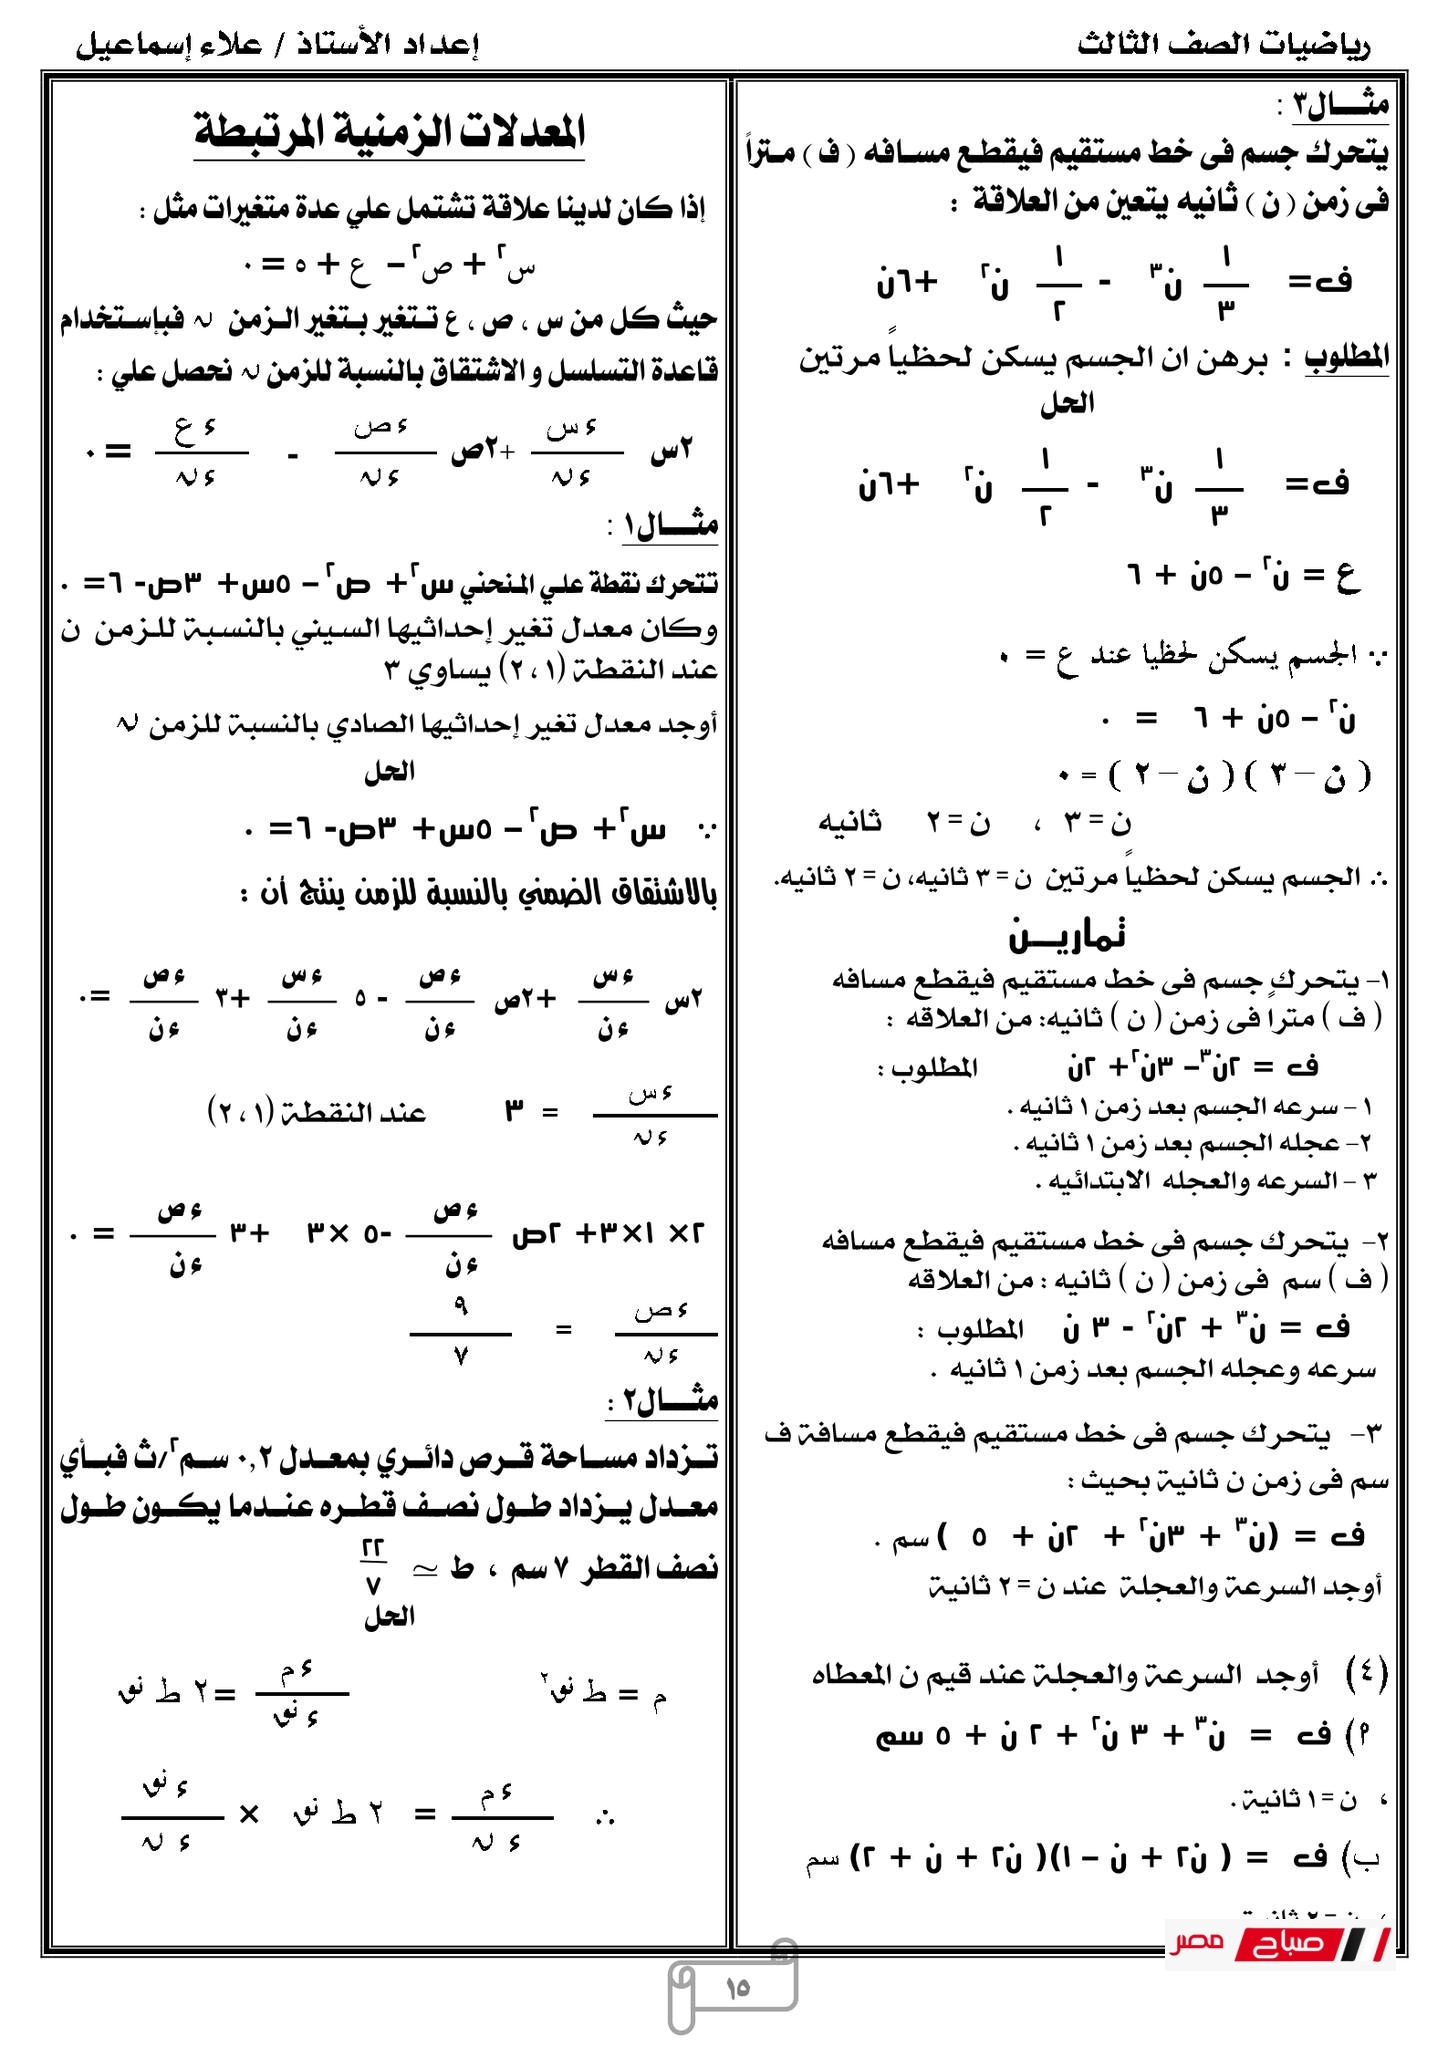 رياضيات الصف الثالث
إعداد الأستاذ / علاء إسماعيل
مثـــال٣ :
يتحرك جسم فى خط مستقيم فيقطع مسافه ( ف ) متراً
فى زمن ( ن ) ثانيه يتعين من العلاقة :
ف= ١/٣ ن٣ - ١/٢ ن٢ +٦ن
المطلوب : برهن ان الجسم يسكن لحظياً مرتين
الحل
ف= ١/٣ ن٣ - ١/٢ ن٢ +٦ن
ع = ن٢ – ٥ن + ٦
∵ الجسم يسكن لحظيا عند ع = ٠
ن٢ – ٥ن + ٦ = ٠
( ن – ٣ ) ( ن – ٢ ) = ٠
ن = ٣ ، ن = ٢ ثانيه
∴ الجسم يسكن لحظياً مرتين ن = ٣ ثانيه، ن = ٢ ثانيه.
تماريـــن
١- يتحرك جسم فى خط مستقيم فيقطع مسافه
( ف ) متراً فى زمن ( ن ) ثانيه: من العلاقه :
ف = ٢ن٣– ٣ن٢+ ٢ن المطلوب :
١ – سرعه الجسم بعد زمن ١ ثانيه .
٢- عجله الجسم بعد زمن ١ ثانيه .
٣ – السرعه والعجله الابتدائيه .
٢- يتحرك جسم فى خط مستقيم فيقطع مسافه
( ف ) سم فى زمن ( ن ) ثانيه : من العلاقه
ف = ن٣ + ٢ن٢ - ٣ ن المطلوب :
سرعه وعجله الجسم بعد زمن ١ ثانيه .
٣- يتحرك جسم فى خط مستقيم فيقطع مسافة ف
سم فى زمن ن ثانية بحيث :
ف = (ن٣ + ٣ن٢ + ٢ن + ٥ ) سم .
أوجد السرعة والعجلة عند ن = ٢ ثانية
(٤) أوجد السرعة والعجلة عند قيم ن المعطاه
م) ف = ن٣ + ٣ ن٢ + ٢ ن + ٥ سم
، ن = ١ ثانية .
ب) ف = ( ن٢ + ن – ١)( ن٢ + ن + ٢) سم
المعدلات الزمنية المرتبطة
إذا كان لدينا علاقة تشتمل علي عدة متغيرات مثل :
س٢ + ص٢ – ع + ٥ = ٠
حيث كل من س ، ص ، ع تتغير بتغير الزمن ن فبإستخدام
قاعدة التسلسل و الاشتقاق بالنسبة للزمن ن نحصل علي :
٢س ءس/ءن +٢ص ءص/ءن - ءع/ءن = ٠
مثـــال١ :
تتحرك نقطة علي المنحني س٢+ ص٢ – ٥س+ ٣ص- ٦= ٠
وكان معدل تغير إحداثيها السيني بالنسبة للزمن ن
عند النقطة (١ ، ٢) يساوي ٣
أوجد معدل تغير إحداثيها الصادي بالنسبة للزمن ن
الحل
∵ س٢+ ص٢ – ٥س+ ٣ص- ٦= ٠
بالاشتقاق الضمني بالنسبة للزمن ينتج أن :
٢س ءس/ءن +٢ص ءص/ءن - ٥ ءس/ءن +٣ ءص/ءن =٠
ءس/ءن = ٣ عند النقطة (١ ، ٢)
٢× ١×٣+ ٢ص ءص/ءن -٥ ×٣ +٣ ءص/ءن = ٠
ءص/ءن = ٩/٧
مثـــال٢ :
تزداد مساحة قرص دائري بمعدل ٠,٢ سم٢/ث فبأي
معدل يزداد طول نصف قطره عندما يكون طول
نصف القطر ٧ سم ، ط ≃ ٢٢/٧
الحل
م = ط نق٢ ءم/ءنق =٢ ط نق
∴ ءم/ءن = ٢ ط نق × ءنق/ءن
١٥
صباح مصر